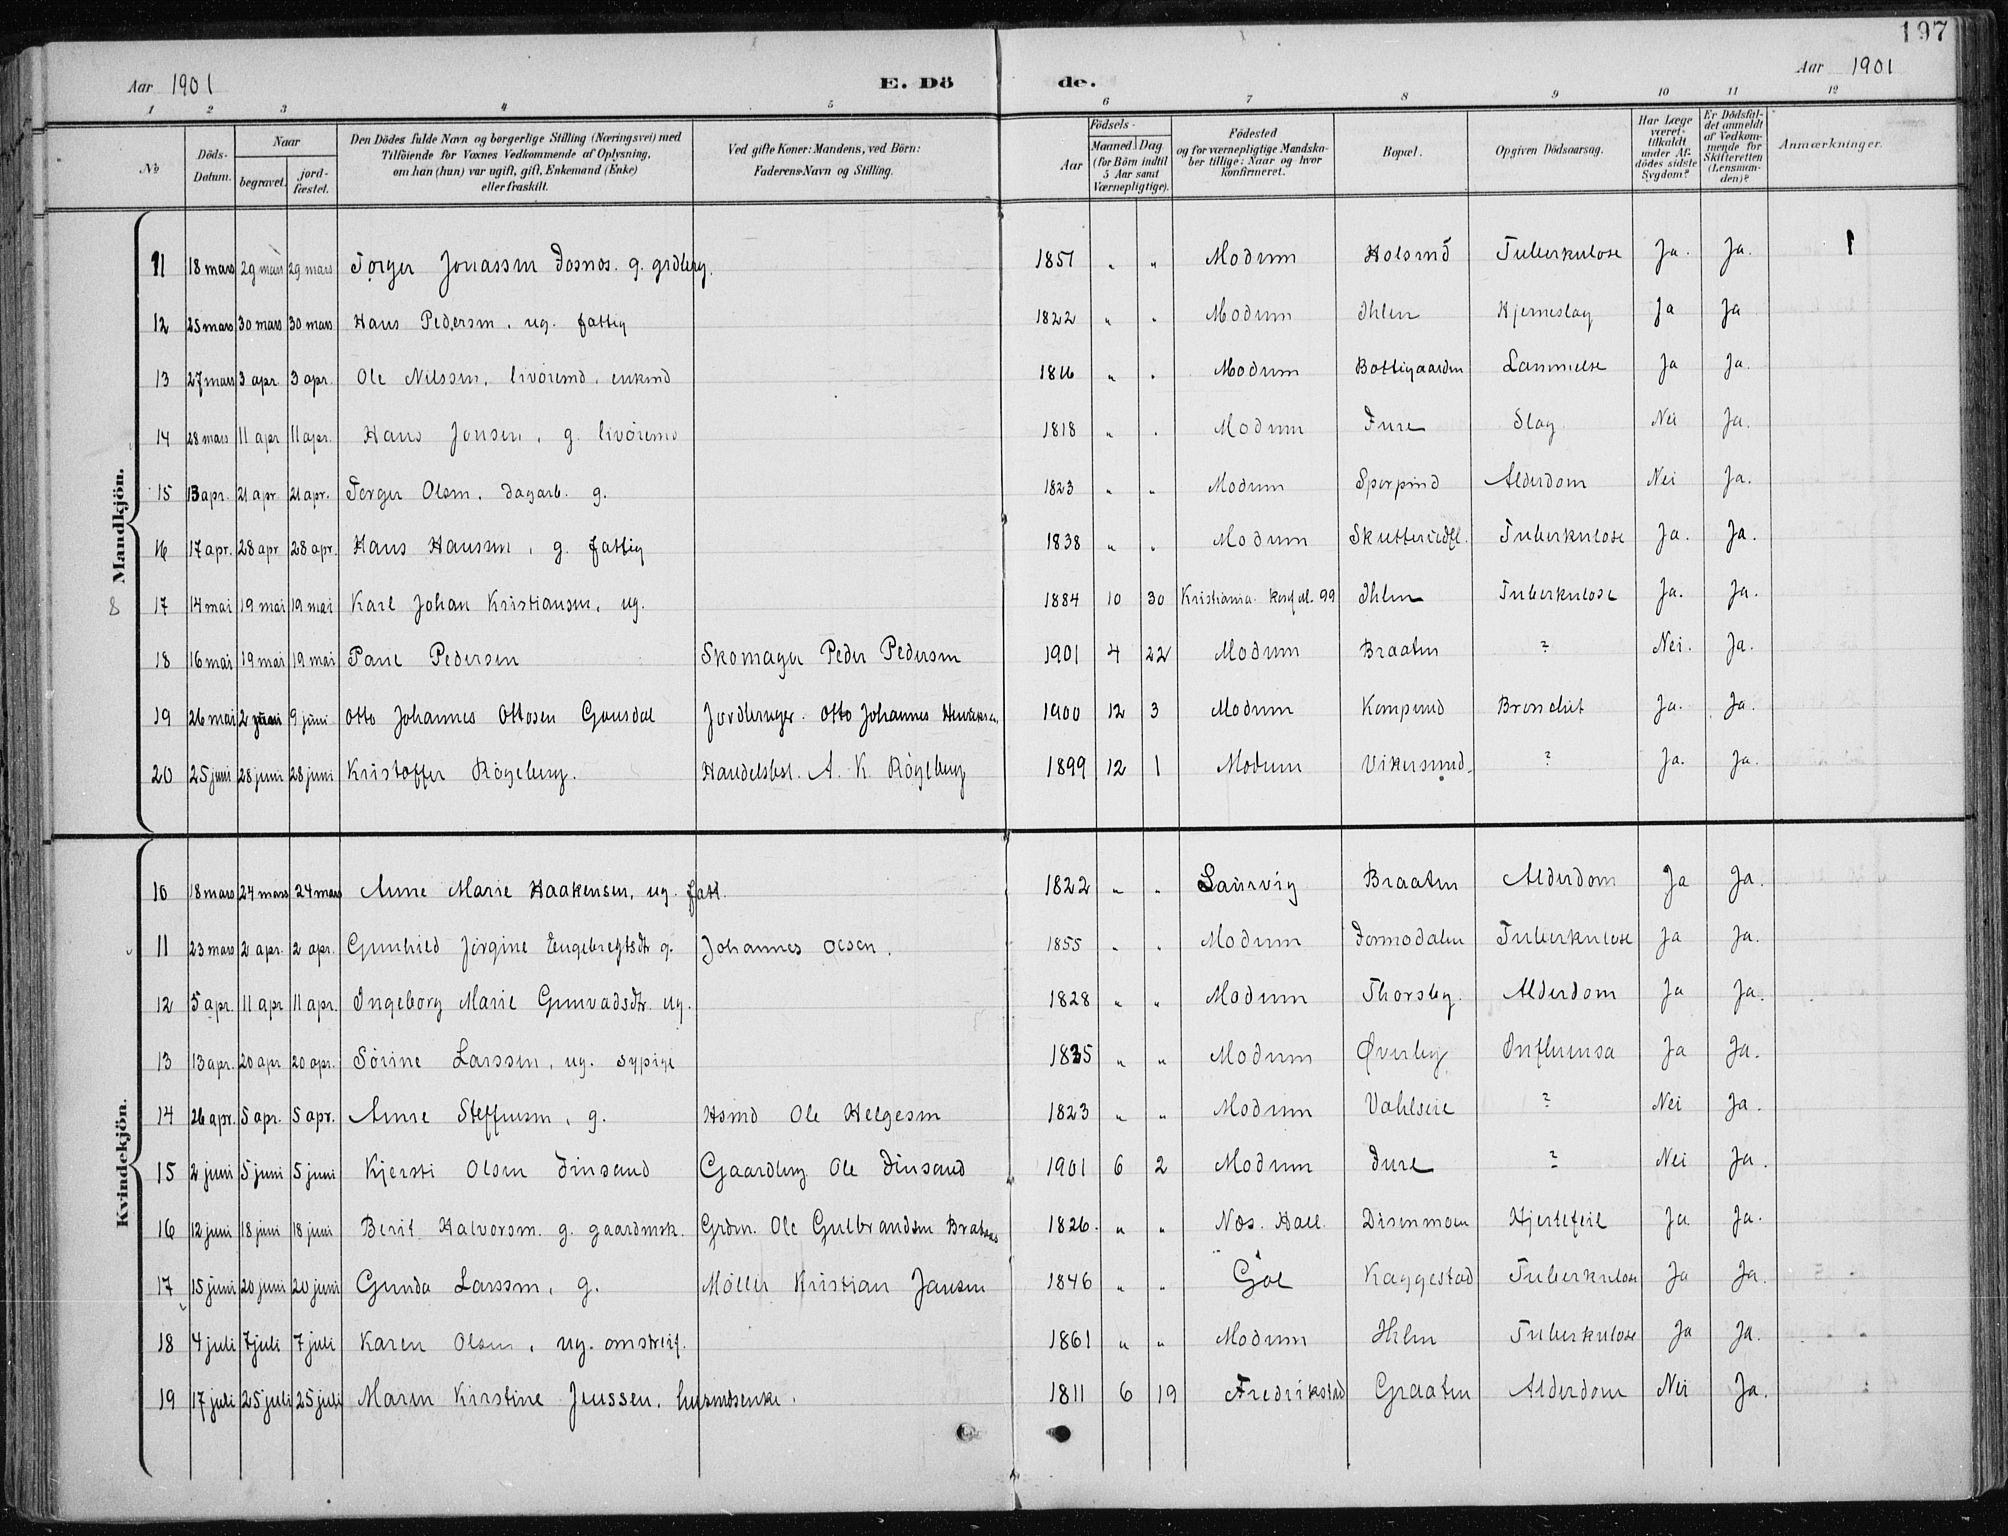 197
Aar 1901 E. Dö de. Aar 1901
1 2 3 4 5 6 7 8 9 10 11 12
No
Döds-Datum.
Naar
begravet. jordfæstet.
Den Dödes fulde Navn og borgerlige Stilling (Næringsvei) med
Tilföiende for Voxnes Vedkommende af Oplysning,
om han (hun) var ugift, gift, Enkemand (Enke)
eller fraskilt.
Ved gifte Koner: Mandens, ved Börn:
Faderens Navn og Stilling.
Födsels-
Aar
Maaned Dag
(for Börn indtil
5 Aar samt
Værnepligtige).
Födested
og for værnepligtige Mandska-
ber tillige: Naar og hvor
konfirmeret.
Bopæl.
Opgiven Dödsaarsag.
Har Læge
været
tilkaldt
under Af-
dödes sidste
Sygdom?
Er Dödsfal-
det anmeldt
af Vedkom-
mende for
Skifteretten
(Lensman-
den)?
Anmærkninger.
Mandkjön.
11 18 mars 29 mars 29 mars Torger Jonassen Fosnos. g. grdbrug. 1851 " " Modum Holsund Tuberkulose Ja. Ja. 1
12 25 mars 30 mars 30 mars Hans Pedersen. ug. fattig 1822 " " Modum Ihlen Hjerneslag Ja Ja
13 27 mars 3 apr. 3 apr. Ole Nilssen, livöremd. enkmd 1816 " " Modum Bottigaarden Lammelse Ja Ja.
14 28 mars 11 apr 11 apr. Hans Jonsen, g. livöremd 1818 " " Modum Fure Slag Nei Ja.
15 13 apr. 21 apr. 21 apr. Torger Olsen. dagarb. g. 1823 " " Modum Sporpind Alderdom Nei Ja.
16 17 apr. 28 apr 28 apr. Hans Hanssen, g. fattig 1838 " " Modum Skutterudfl. Tuberkulose Ja. Ja.
8 17 14 mai 19 mai 19 mai Karl Johan Kristiansen, ug. 1884 10 30 Kristiania. konf. 99 Ihlen Tuberkulose Ja. Ja.
18 16 mai 19 mai 19 mai Paul Pedersen Skomager Peder Pedersen 1901 4 22 Modum Braaten ? Nei. Ja.
19 26 mai 2 juni 9 juni Otto Johannes Ottosen Gausdal Jordbruger. Otto Johannes Henriksen, 1900 12 3 Modum Komperud Bronchit Ja. Ja.
20 25 juni 28 juni 28 juni Kristoffer Rögeberg. Handelsbest. A. K. Rögeberg 1899 12 1 Modum Vikersund. ? Ja. Ja.
Kvindekjön.
10 18 mars 24 mars 24 mars Anne Marie Haakensen, ug. fatt. 1822 " " Laurvig Braaten Alderdom Ja Ja.
11 23 mars 2 apr. 2 apr. Gunhild Jörgine Engebregtsdtr g. Johannes Olsen. 1855 " " Modum Formodalen Tuberkulose Ja Ja.
12 5 apr. 11 apr 11 apr. Ingeborg Marie Gunvadsdtr. ug. 1828 " " Modum Thorsby. Alderdom Ja Ja.
13 13 apr. 20 apr 20 apr. Sörine Larssen, ug. sypige 1835 " " Modum Øverby Influensa Ja Ja.
14 26 apr. 5 apr. 5 apr. Anne Steffensen, g. Hsmd Ole Helgesen 1823 " " Modum Vahlseie ? Nei Ja.
15 2 juni 5 juni 5 juni Kjersti Olsen Finsand Gaardbrug Ole Finsand 1901 6 2 Modum Fure ? Nei Ja.
16 12 juni 18 juni 18 juni Berit Halvorsen. g. gaardmsk. Grdm. Ole Gulbrandsen Brataas 1826. " " Næs. Hall. Disenmoen Hjertefeil Ja Ja.
17 15 juni 20 juni 20 juni Gunda Larssen, g. Möller Kristian Jansen 1846 " " Gol Kaggestad Tuberkulose Ja Ja.
18 4 juli 7 juli 7 juli Karen Olsen, ug. omstreif. 1861 " " Modum Ihlen Tuberkulose Ja Ja.
19 17 juli 25 juli 25 juli Maren Kirstine Jenssen, husmdsenke. 1811 6 19 Fredrikstad Graaten Alderdom Nei Ja.